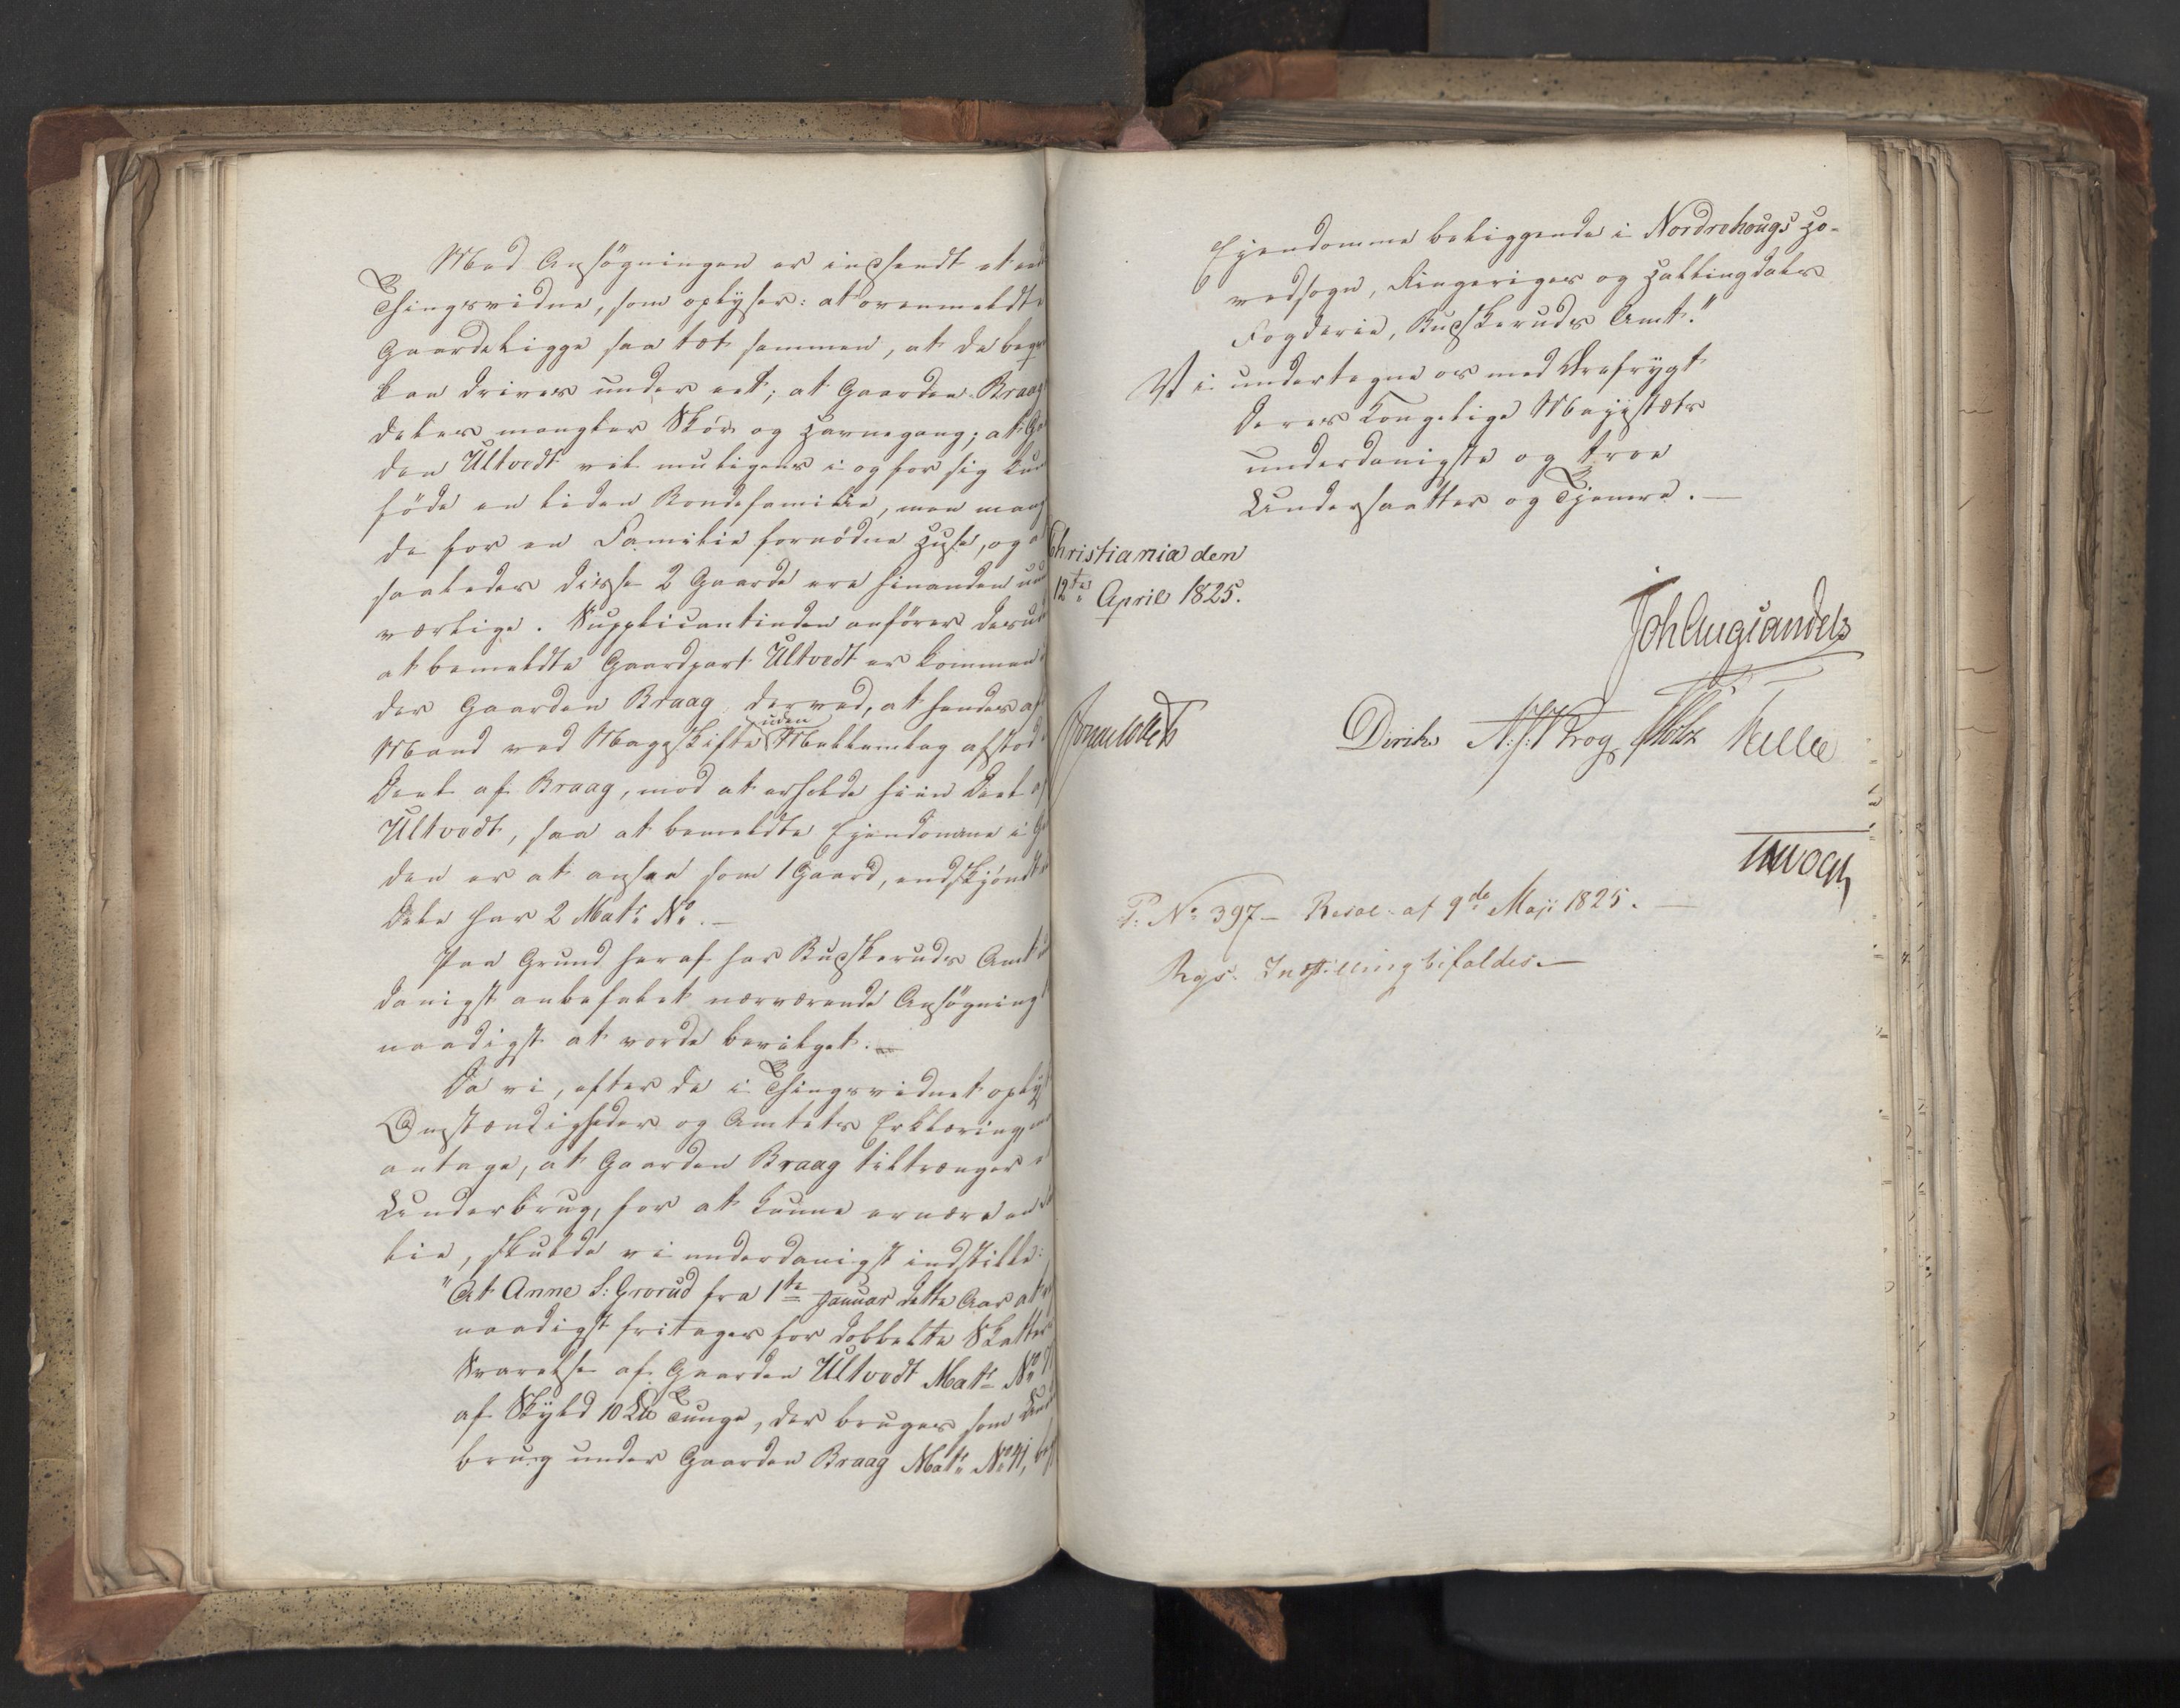 Med Ansøgningen er indsendt et
Thingsvidne, som oplyser: at ovenmeldte
Gaarde ligge saa tæt sammen, at de beq
kan drives under eet; at Gaarden Braag
deles mangler Skov og Havnegang; at G
den Ultvedt vel muligens i og for sig kun
føde en liden Bondefamilie, men mang
de for en Familie fornødne Huse, og
saaledes disse 2 Gaarde ere hinanden
værlige. Supplicantinden anfører desud
at bemeldte Gaardpart Ultvedt er kommen
der Gaarden Braag derved, at hendes af
Mand ved Mageskifte uden Mellemlag afstod
Deel af Braag, mod at erholde hiin Deel af
Ultvedt, saa at bemeldte Ejendomme i G
den er at ansee som 1 Gaard, endskjøndt
dele har 2 Matr No.-
Paa Grund heraf har Buskeruds Amt
danigst anbefalet nærværende Ansøgning
naadigst at vorde bevilget.
Da vi, efter de i Thingsvidnet oply
Omstændigheder og Amtets Erklæring,
antage, at Gaarden Braag tiltrænger
Underbrug, for at kunne ernære en
lie, skulde vi underdanigst indstille:
"At Anne S: Grorud fra 1ste Januar dette Aar
naadigst fritages for dobbelte Skatters
Svarelse af Gaarden Ultvedt Matr No
af Skyld 10 Lb Tunge, der bruges som Und
brug under Gaarden Braag Matr No 41,
Ejendomme beliggende i Nordrehougs Ho-
vedsogn, Ringeriges og Hallingdals
Fogderie, Buskeruds Amt."
Vi undertegne os med Ærefrygt
Deres Kongelige Majestæts
underdanigste og troe
Undersaatter og Tjenere.—
Christiania den
12te April 1825.
Joh Aug Sandels
Sommerfeldt Diriks N. J. Krog Holst Kullee
P: No 397 - Resol. af 9de Maji 1825.—
Rgs. Indstilling bifaldes.—